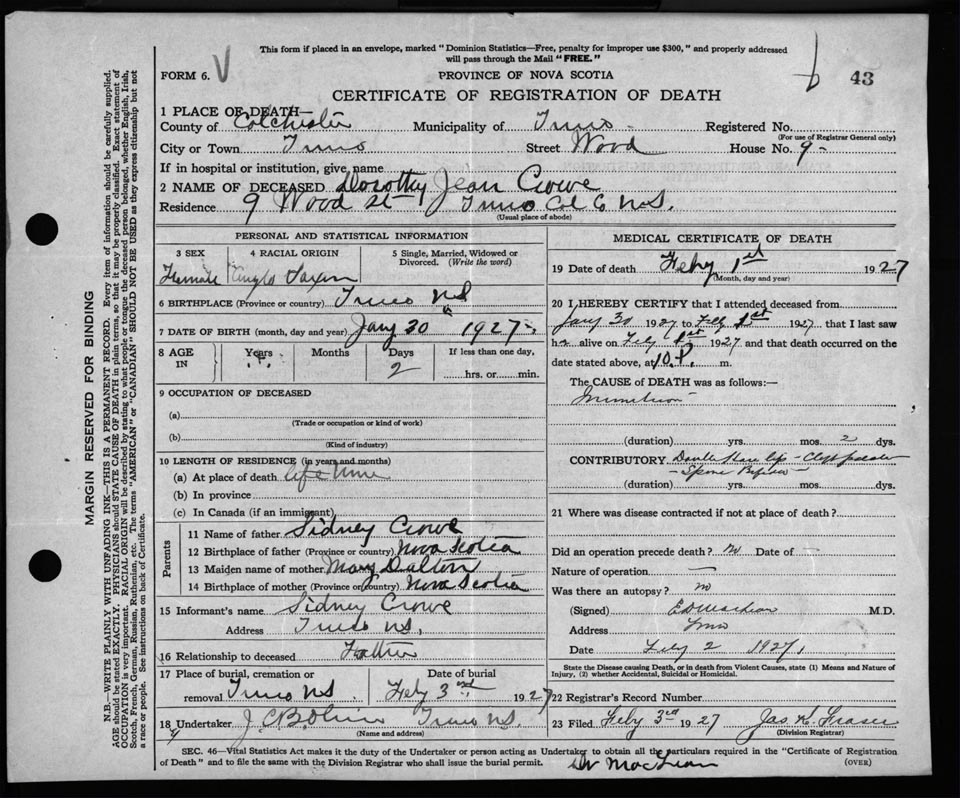 This form if placed in an envelope, marked "Dominion Statistics—Free, penalty for improper use $300," and properly addressed
will pass through the Mail "FREE."
FORM 6.
PROVINCE OF NOVA SCOTIA
43
CERTIFICATE OF REGISTRATION OF DEATH
1 PLACE OF DEATH—
County of Colchester Municipality of Truro Registered No.
(For use of Registrar General only)
City or Town Truro Street Wood House No. 9
If in hospital or institution, give name
2 NAME OF DECEASED Dorothy Jean Crowe
Residence 9 Wood St Truro Col Co N.S.
(Usual place of abode)
PERSONAL AND STATISTICAL INFORMATION
3 SEX 4 RACIAL ORIGIN 5 Single, Married, Widowed or Divorced. (Write the word)
Female Anglo Saxon
6 BIRTHPLACE (Province or country) Truro NS
7 DATE OF BIRTH (month, day and year) Jany 30 1927
8 AGE IN Years Months Days If less than one day,
2 hrs. or min.
9 OCCUPATION OF DECEASED
(a)
(Trade or occupation or kind of work)
(b)
(Kind of industry)
10 LENGTH OF RESIDENCE (in years and months)
(a) At place of death life time
(b) In province
(c) In Canada (if an immigrant)
Parents
11 Name of father Sidney Crowe
12 Birthplace of father (Province or country) Nova Scotia
13 Maiden name of mother Mary Dalton
14 Birthplace of mother (Province or country) Nova Scotia
15 Informant's name Sidney Crowe
Address Truro NS,
16 Relationship to deceased Father
17 Place of burial, cremation or removal Truro NS Date of burial Feby 3rd 1927
18 Undertaker Truro NS.
(Name and address)
MEDICAL CERTIFICATE OF DEATH
19 Date of death Feby 1st 1927
(Month, day and year)
20 I HEREBY CERTIFY that I attended deceased from
Jany 30 1927 to Feby 1st 1927, that I last saw
h alive on Feby 1st 1927 and that death occurred on the
date stated above, at 10.P. m.
The CAUSE of DEATH was as follows:—
Inanition
(duration) yrs. mos. 2 dys.
CONTRIBUTORY Double Hare lip - Cleft palate
- Spina Bifida -
(duration) yrs. mos. dys.
21 Where was disease contracted if not at place of death?
Did an operation precede death? no Date of —
Nature of operation —
Was there an autopsy? no
(Signed) M.D.
Address Truro
Date Feby 2 1927,
State the Disease causing Death, or in death from Violent Causes, state (1) Means and Nature of
Injury, (2) whether Accidental, Suicidal or Homicidal.
22 Registrar's Record Number
23 Filed Feby 3rd 1927 Jas. Fraser
(Division Registrar)
SEC. 46—Vital Statistics Act makes it the duty of the Undertaker or person acting as Undertaker to obtain all the particulars required in the "Certificate of Registration
of Death" and to file the same with the Division Registrar who shall issue the burial permit.
Dr MacLean
(OVER)
MARGIN RESERVED FOR BINDING
N.B.—WRITE PLAINLY WITH UNFADING INK—THIS IS A PERMANENT RECORD. Every item of information should be carefully supplied.
AGE should be stated EXACTLY. PHYSICIANS should STATE CAUSE OF DEATH in plain terms, so that it may be properly classified. Exact statement of
OCCUPATION is very important. RACIAL ORIGIN will be described by stating to what people or tongue the deceased person belonged, whether English, Irish,
Scotch, French, German, Russian, Ruthenian, etc. The terms "AMERICAN" or "CANADIAN" SHOULD NOT BE USED as they express citizenship but not
a race or people. See instructions on back of Certificate.